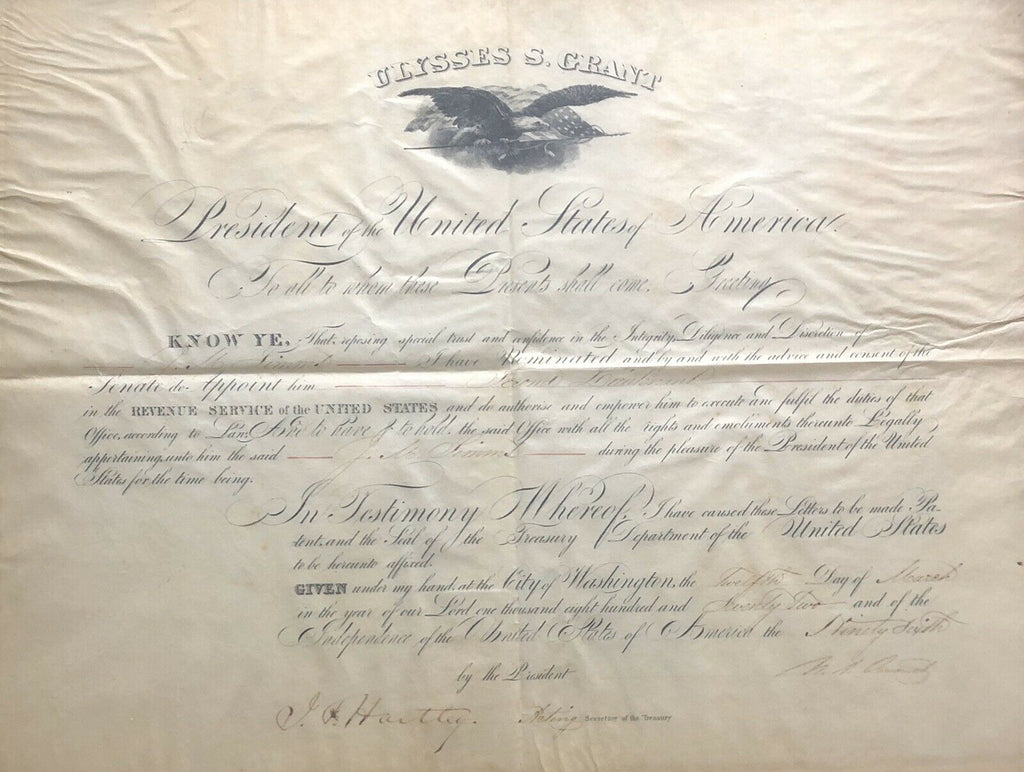 ULYSSES S. GRANT
President of the United States of America.
To all to whom these Presents shall come, Greeting
KNOW YE, That, reposing special trust and confidence in the Integrity, Diligence and Discretion of
I have Nominated and by and with the advice and consent of the
Senate do Appoint him Second Lieutenant
in the REVENUE SERVICE of the UNITED STATES and do authorise and empower him to execute and fulfil the duties of that
Office, according to Law; And to have & to hold, the said Office with all the rights and emoluments thereunto Legally
appertaining, unto him the said during the pleasure of the President of the United
States for the time being.
In Testimony Whereof, I have caused these Letters to be made Pa-
tent, and the Seal of the Treasury Department of the United States
to be hereunto affixed.
GIVEN under my hand, at the City of Washington, the Twelfth Day of March
in the year of our Lord one thousand eight hundred and Seventy Two and of the
Independence of the United States of America the Ninety Sixth
by the President
J. F. Hartley. Acting Secretary of the Treasury